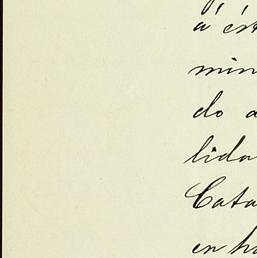 á ést
min
do a
lida
Cata
en ha